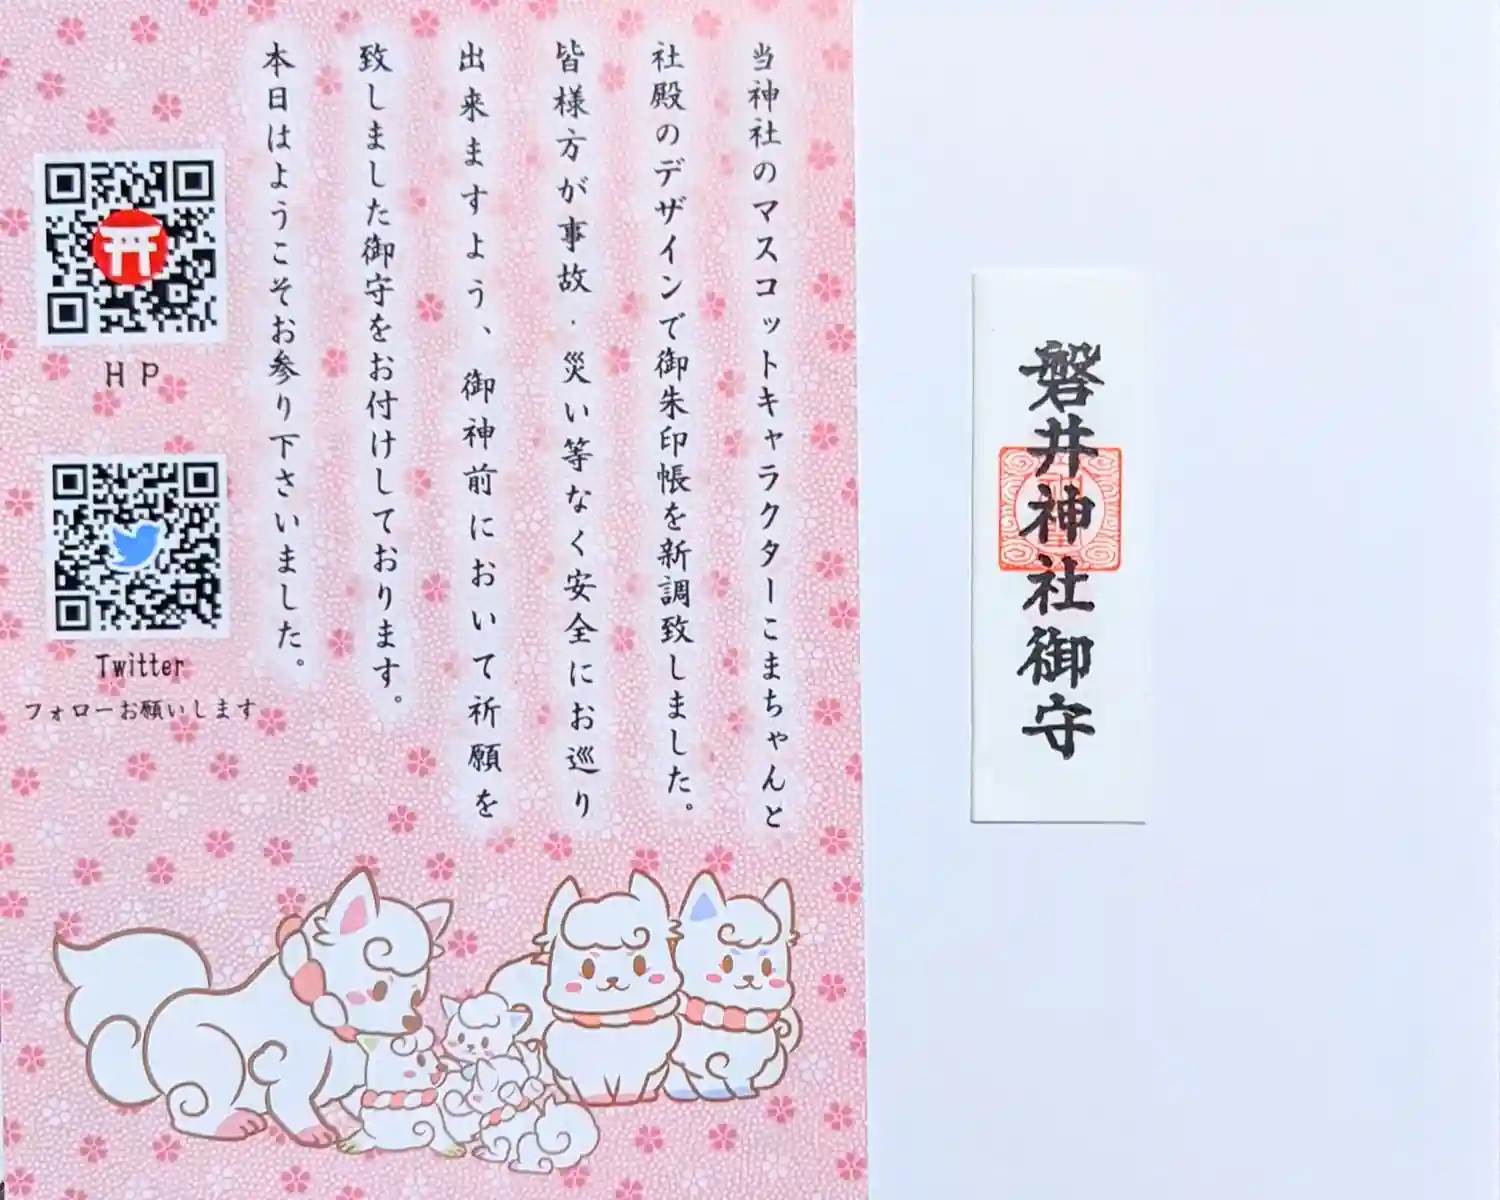 当神社のマスコットキャラクターこまちゃんと
社殿のデザインで御朱印帳を新調致しました。
皆様方が事故・災い等なく安全にお巡り
出来ますよう、御神前において祈願を
致しました御守をお付けしております。
本日はようこそお参り下さいました。
HP
Twitter
フォローお願いします
磐井神社御守